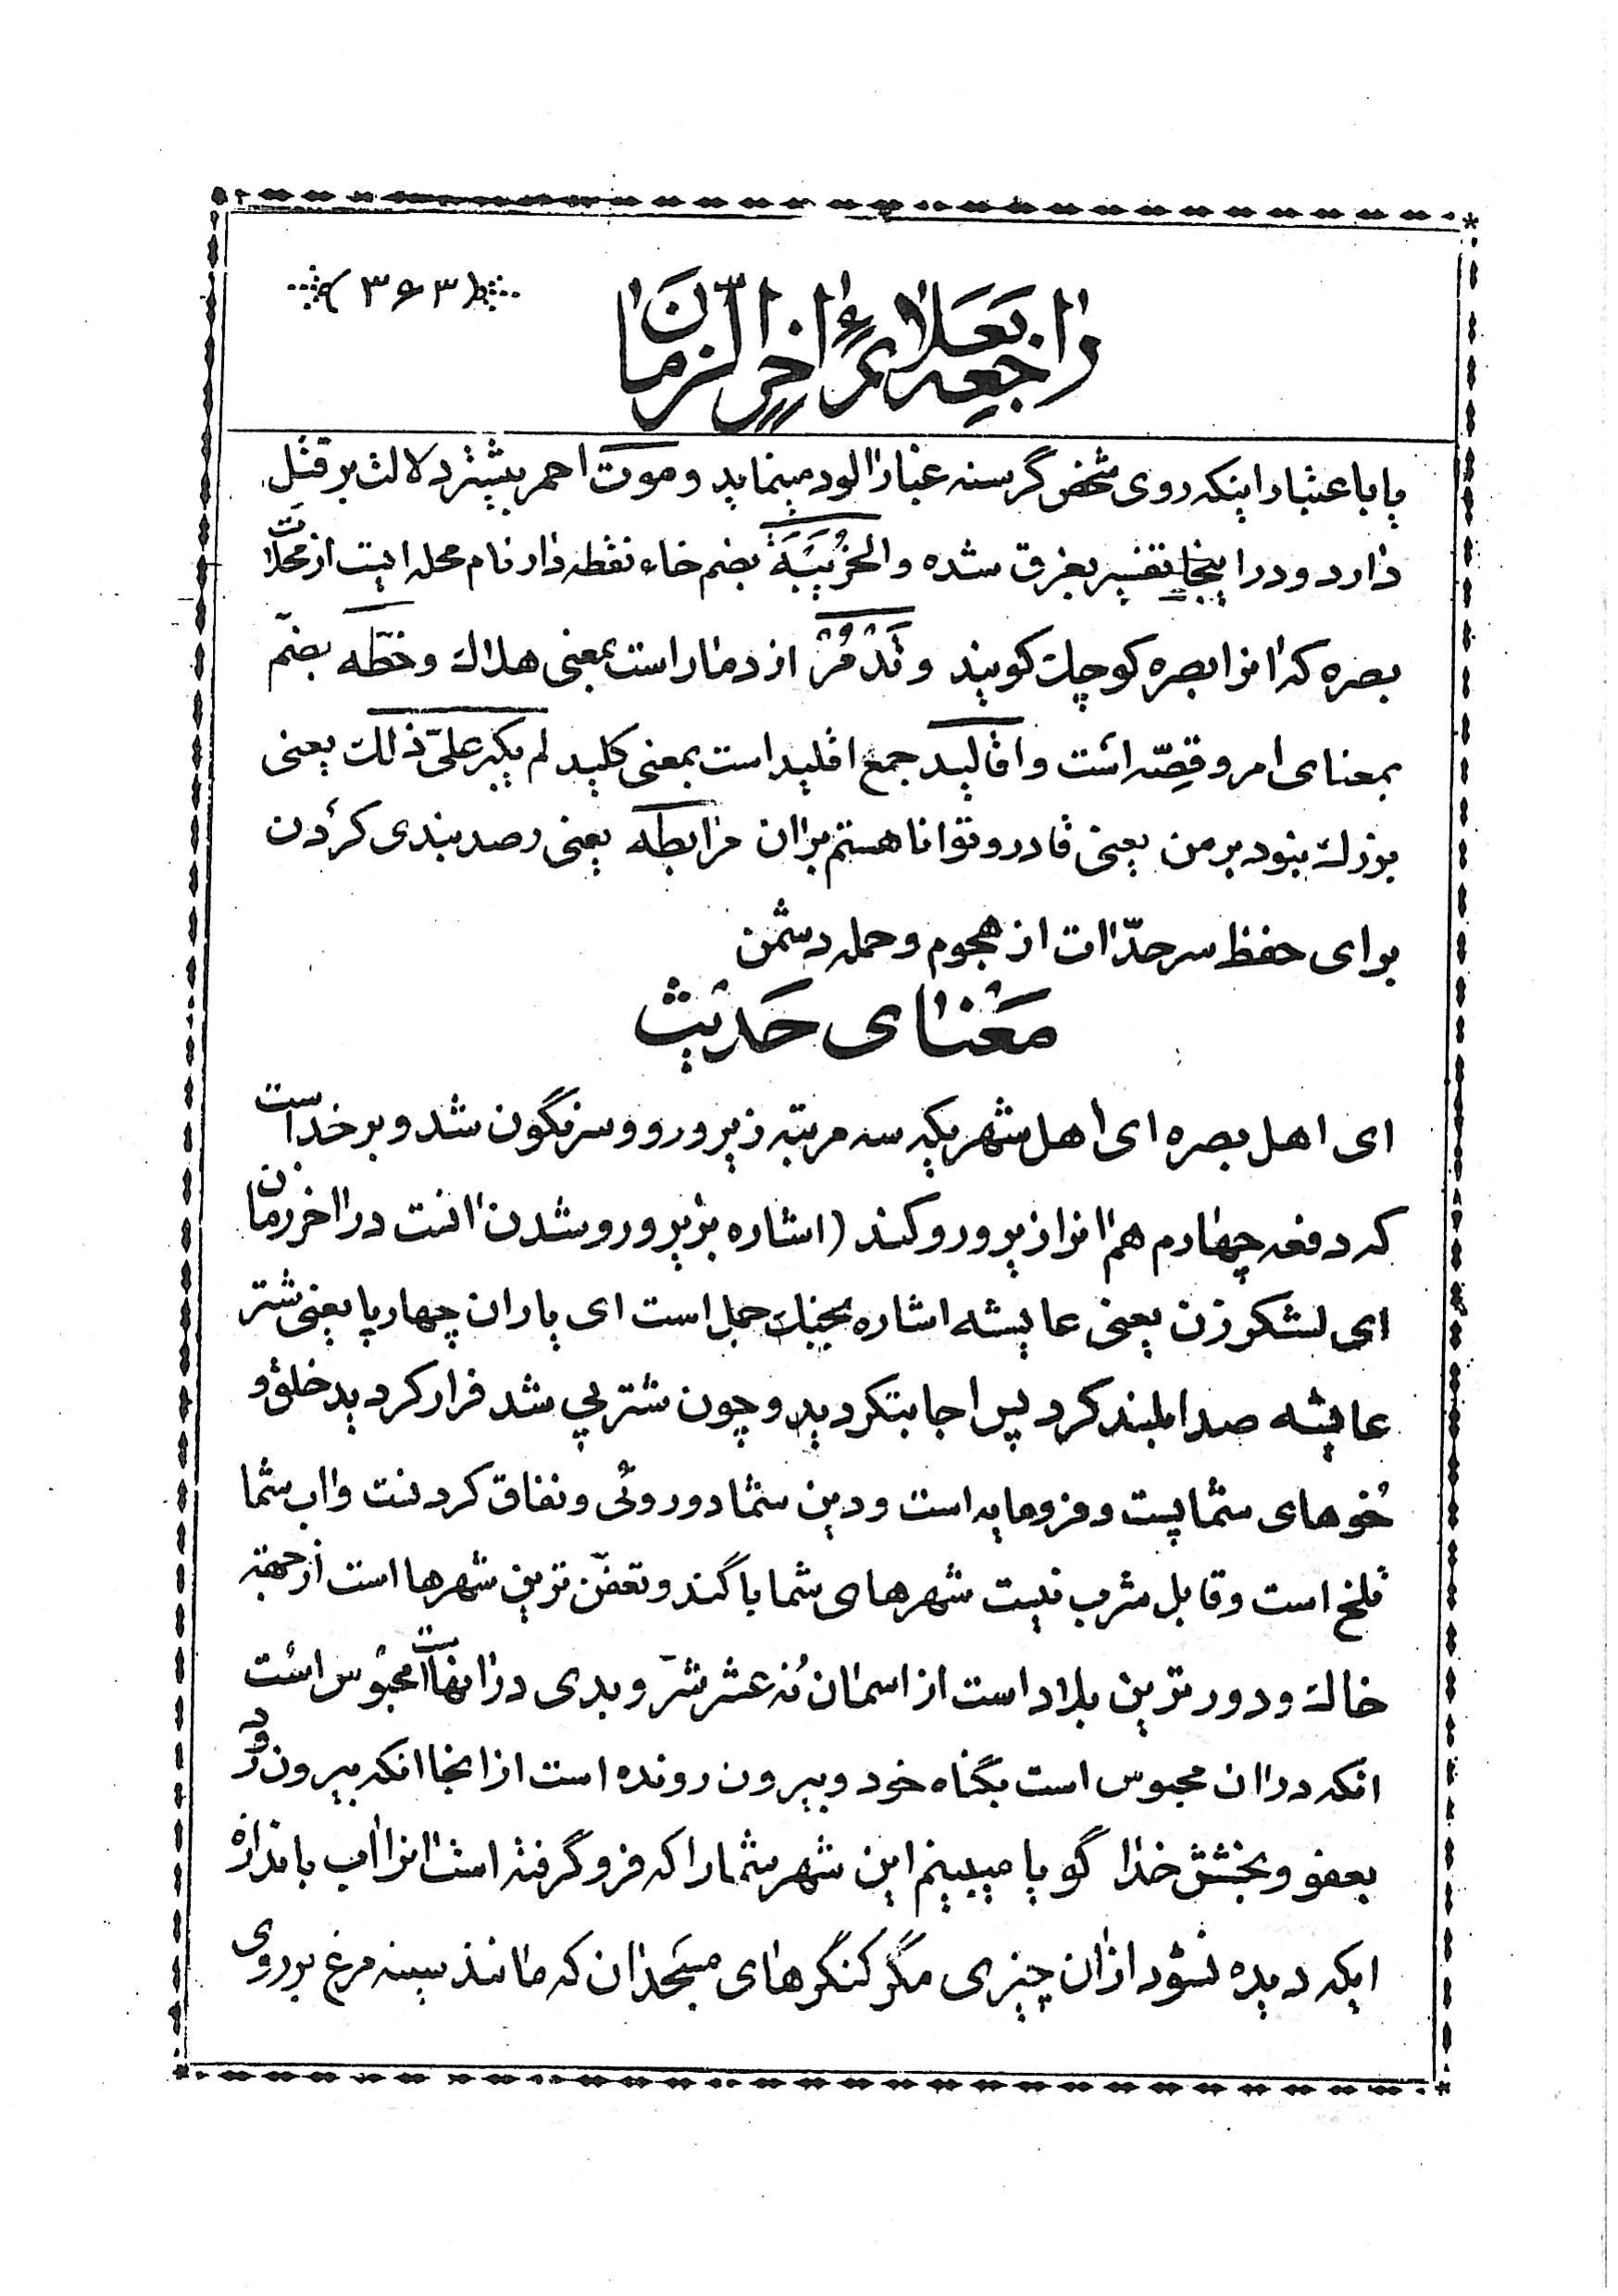 راجعه بعلائم اخر الزمان
(۳۶۳)
یا باعتبار اینکه روی شخص گرسنه غبار الود مینماید و موت احمر بیشتر دلالت بر قتل
دارد و در اینجا تفسیر بغرق شده والخُرَیبَة بضم خاء نقطه دار نام محله ایست از محلات
بصره که انرا بصره کوچک کویند و تَدْمُرْ از دمار است بمعنی هلاک و خطّه بضمّ
بمعنای امر و قصّه است و اقالید جمع اقلید است بمعنی کلید لم یکبر علیّ ذلک یعنی
بزرک نبود بر من یعنی قادر و توانا هستم بر ان مرابطه یعنی رصد بندی کردن
برای حفظ سرحدّات از هجوم و حمله دشمن
مَعْنای حَدیث
ای اهل بصره ای اهل شهریکه سه مرتبه زیر و رو و سرنگون شد و بر خداست
که دفعه چهارم هم انرا زیر و رو کند (اشاره بزیر و رو شدن انست در اخر زمان
ای لشکر زن یعنی عایشه اشاره بجنک جمل است ای یاران چهارپا یعنی شتر
عایشه صدا بلند کرد پس اجابت کردید و چون شتر پی شد فرار کردید خلق و
خُوهای شما پست و فرومایه است و دین شما دوروئی و نفاق کردنست و اب شما
تلخ است و قابل شرب نیست شهرهای شما با گند و تعفّن ترین شهرها است از جهة
خاک و دورترین بلاد است از اسمان نُه عشر شرّ و بدی در انها است محبوس است
انکه در ان محبوس است بگناه خود و بیرون رونده است از انجا انکه بیرون رود
بعفو و بخشش خدا گویا میبینم این شهر شما را که فرو گرفته است انرا اب باندازه
ایکه دیده نشود از ان چیزی مگر کنگرهای مسجد ان که مانند سینه مرغ بر روی